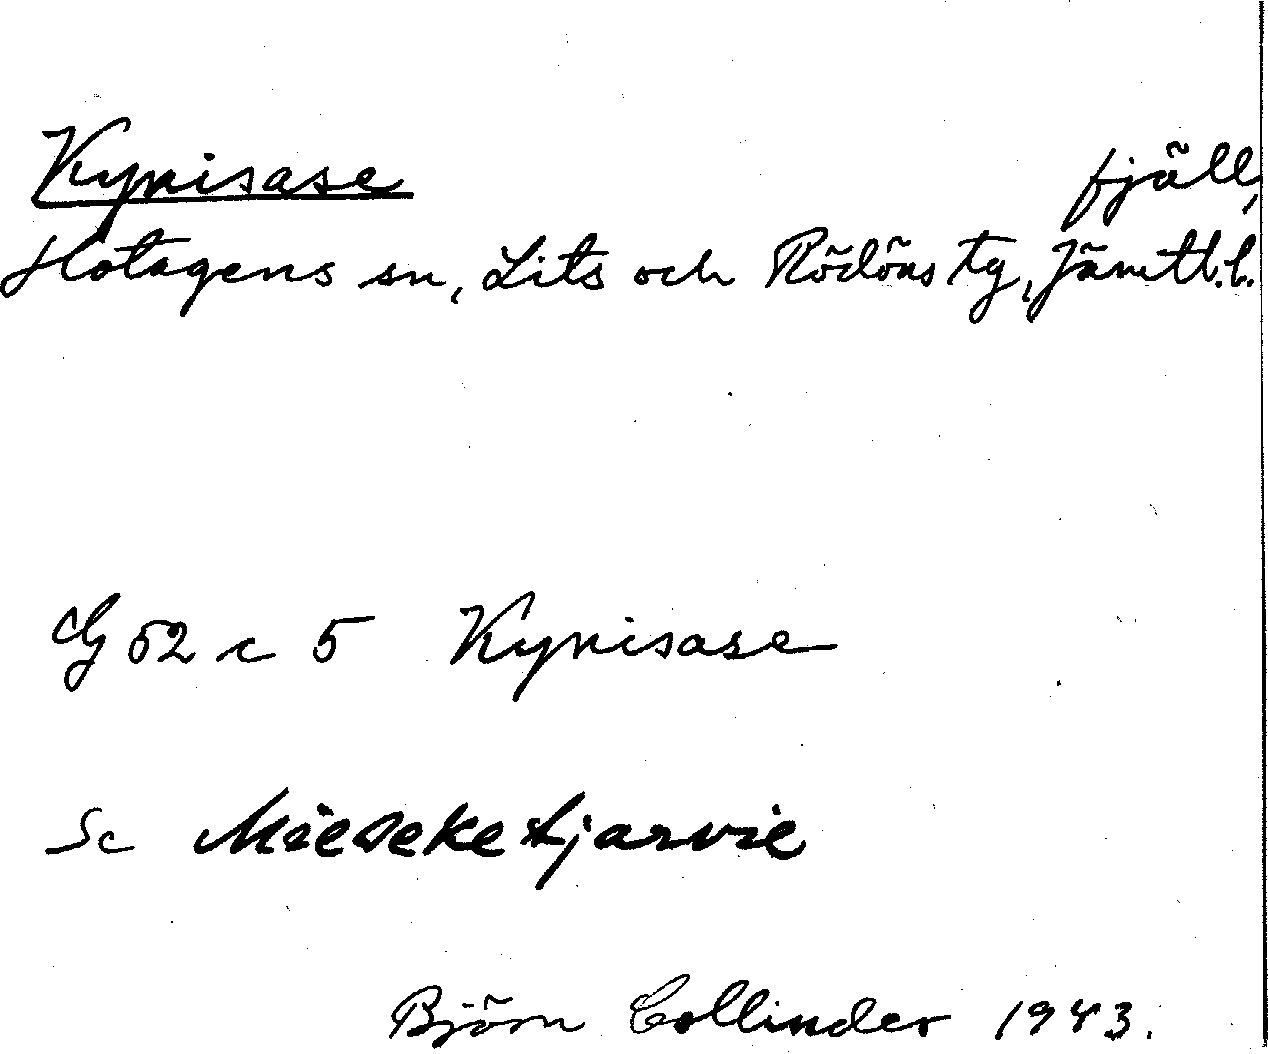 Kynisase fjäll,
Hotagens sn, Lits och Rödöns tg, Jämtl. l.
G 52 c 5 Kynisase
Sc
Björn Collinder 1943.